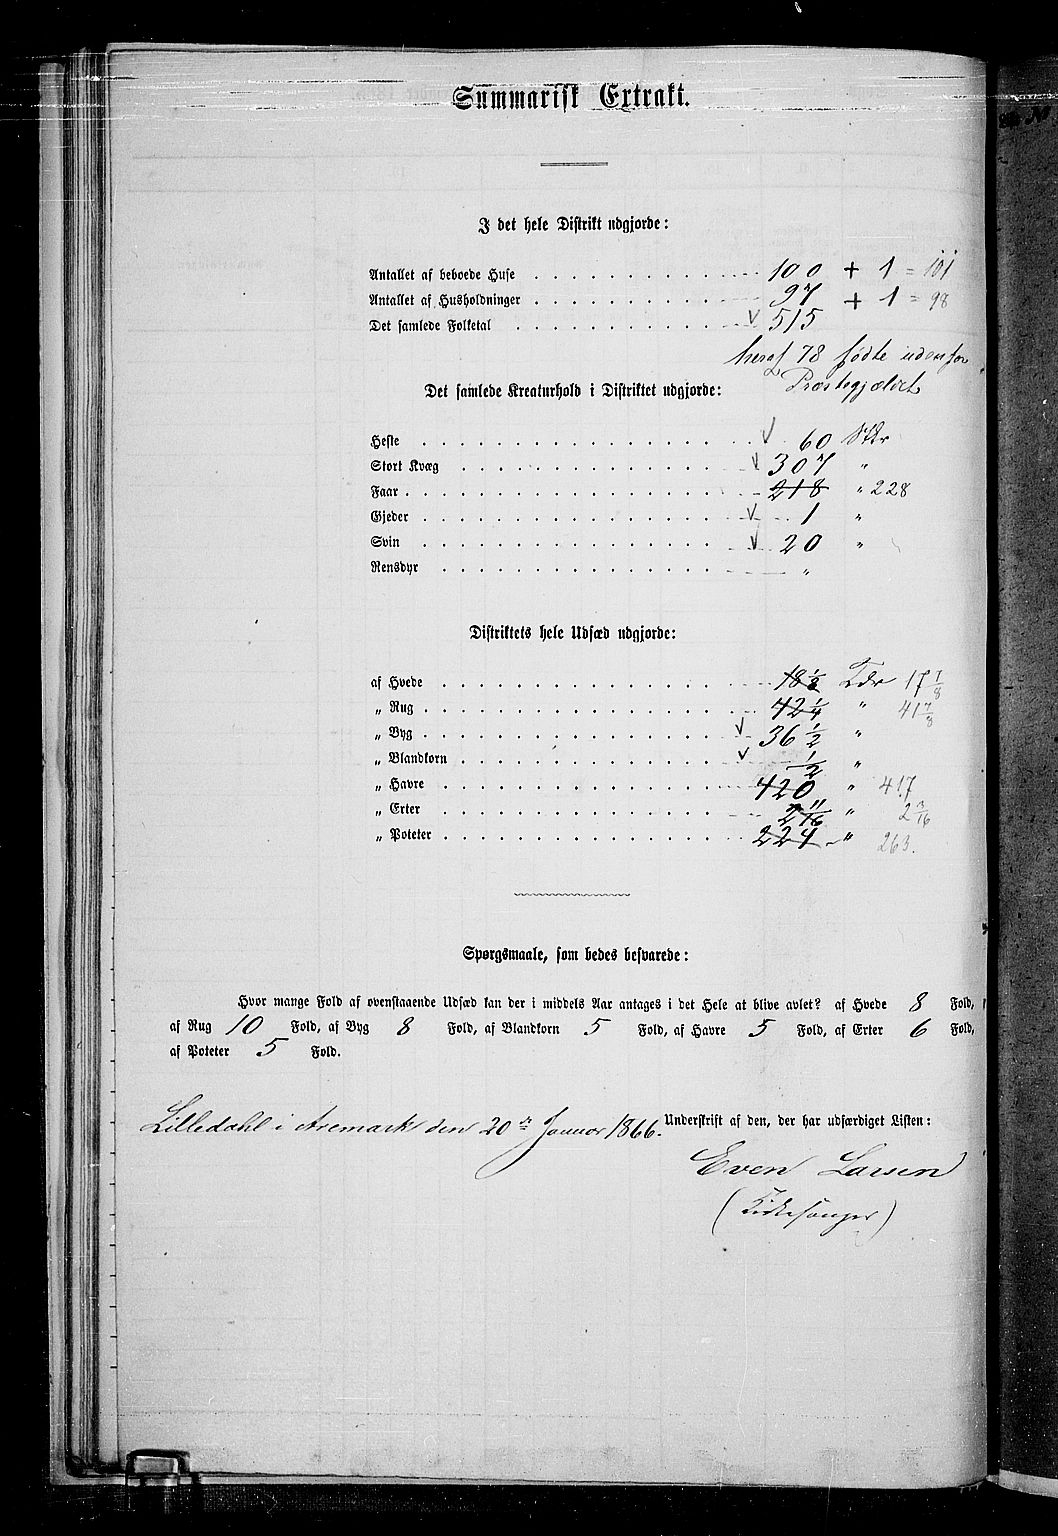 Summarisk Extrakt.
I det hele Distrikt udgjorde:
Antallet af beboede Huse . . . . . . . . . . 100 + 1 = 101
Antallet af Husholdninger . . . . . . . . . . 97 + 1 = 98
Det samlede Folketal . . . . . . . . . . √ 515
heraf 78 fødte udenfor
Præstegjældet
Det samlede Kreaturhold i Distriktet udgjorde:
Heste . . . . . . . . . . √ 60 Stkr
Stort Kvæg . . . . . . . . . . √ 307 "
Faar . . . . . . . . . . 218 " 228
Gjeder . . . . . . . . . . √ 1 "
Svin . . . . . . . . . . √ 20 "
Rensdyr . . . . . . . . . . "
Distriktets hele Udsæd udgjorde:
af Hvede . . . . . . . . . . 18 1/8 Tdr 17 7/8
" Rug . . . . . . . . . . 42 1/4 " 41 7/8
" Byg . . . . . . . . . . √ 36 1/2 "
" Blandkorn . . . . . . . . . . √ 1/2 "
" Havre . . . . . . . . . . 420 " 417
" Erter . . . . . . . . . . 2 11/16 " 2 3/16
" Poteter . . . . . . . . . . 224 " 263.
Spørgsmaale, som bedes besvarede:
Hvor mange Fold af ovenstaaende Udsæd kan der i middels Aar antages i det Hele at blive avlet? af Hvede 8 Fold,
af Rug 10 Fold, af Byg 8 Fold, af Blandkorn 5 Fold, af Havre 5 Fold, af Erter 6 Fold,
af Poteter 5 Fold.
Lilledahl i Aremark den 20de Januar 1866. Underskrift af den, der har udfærdiget Listen:
Even Larsen
(Kirkesanger)